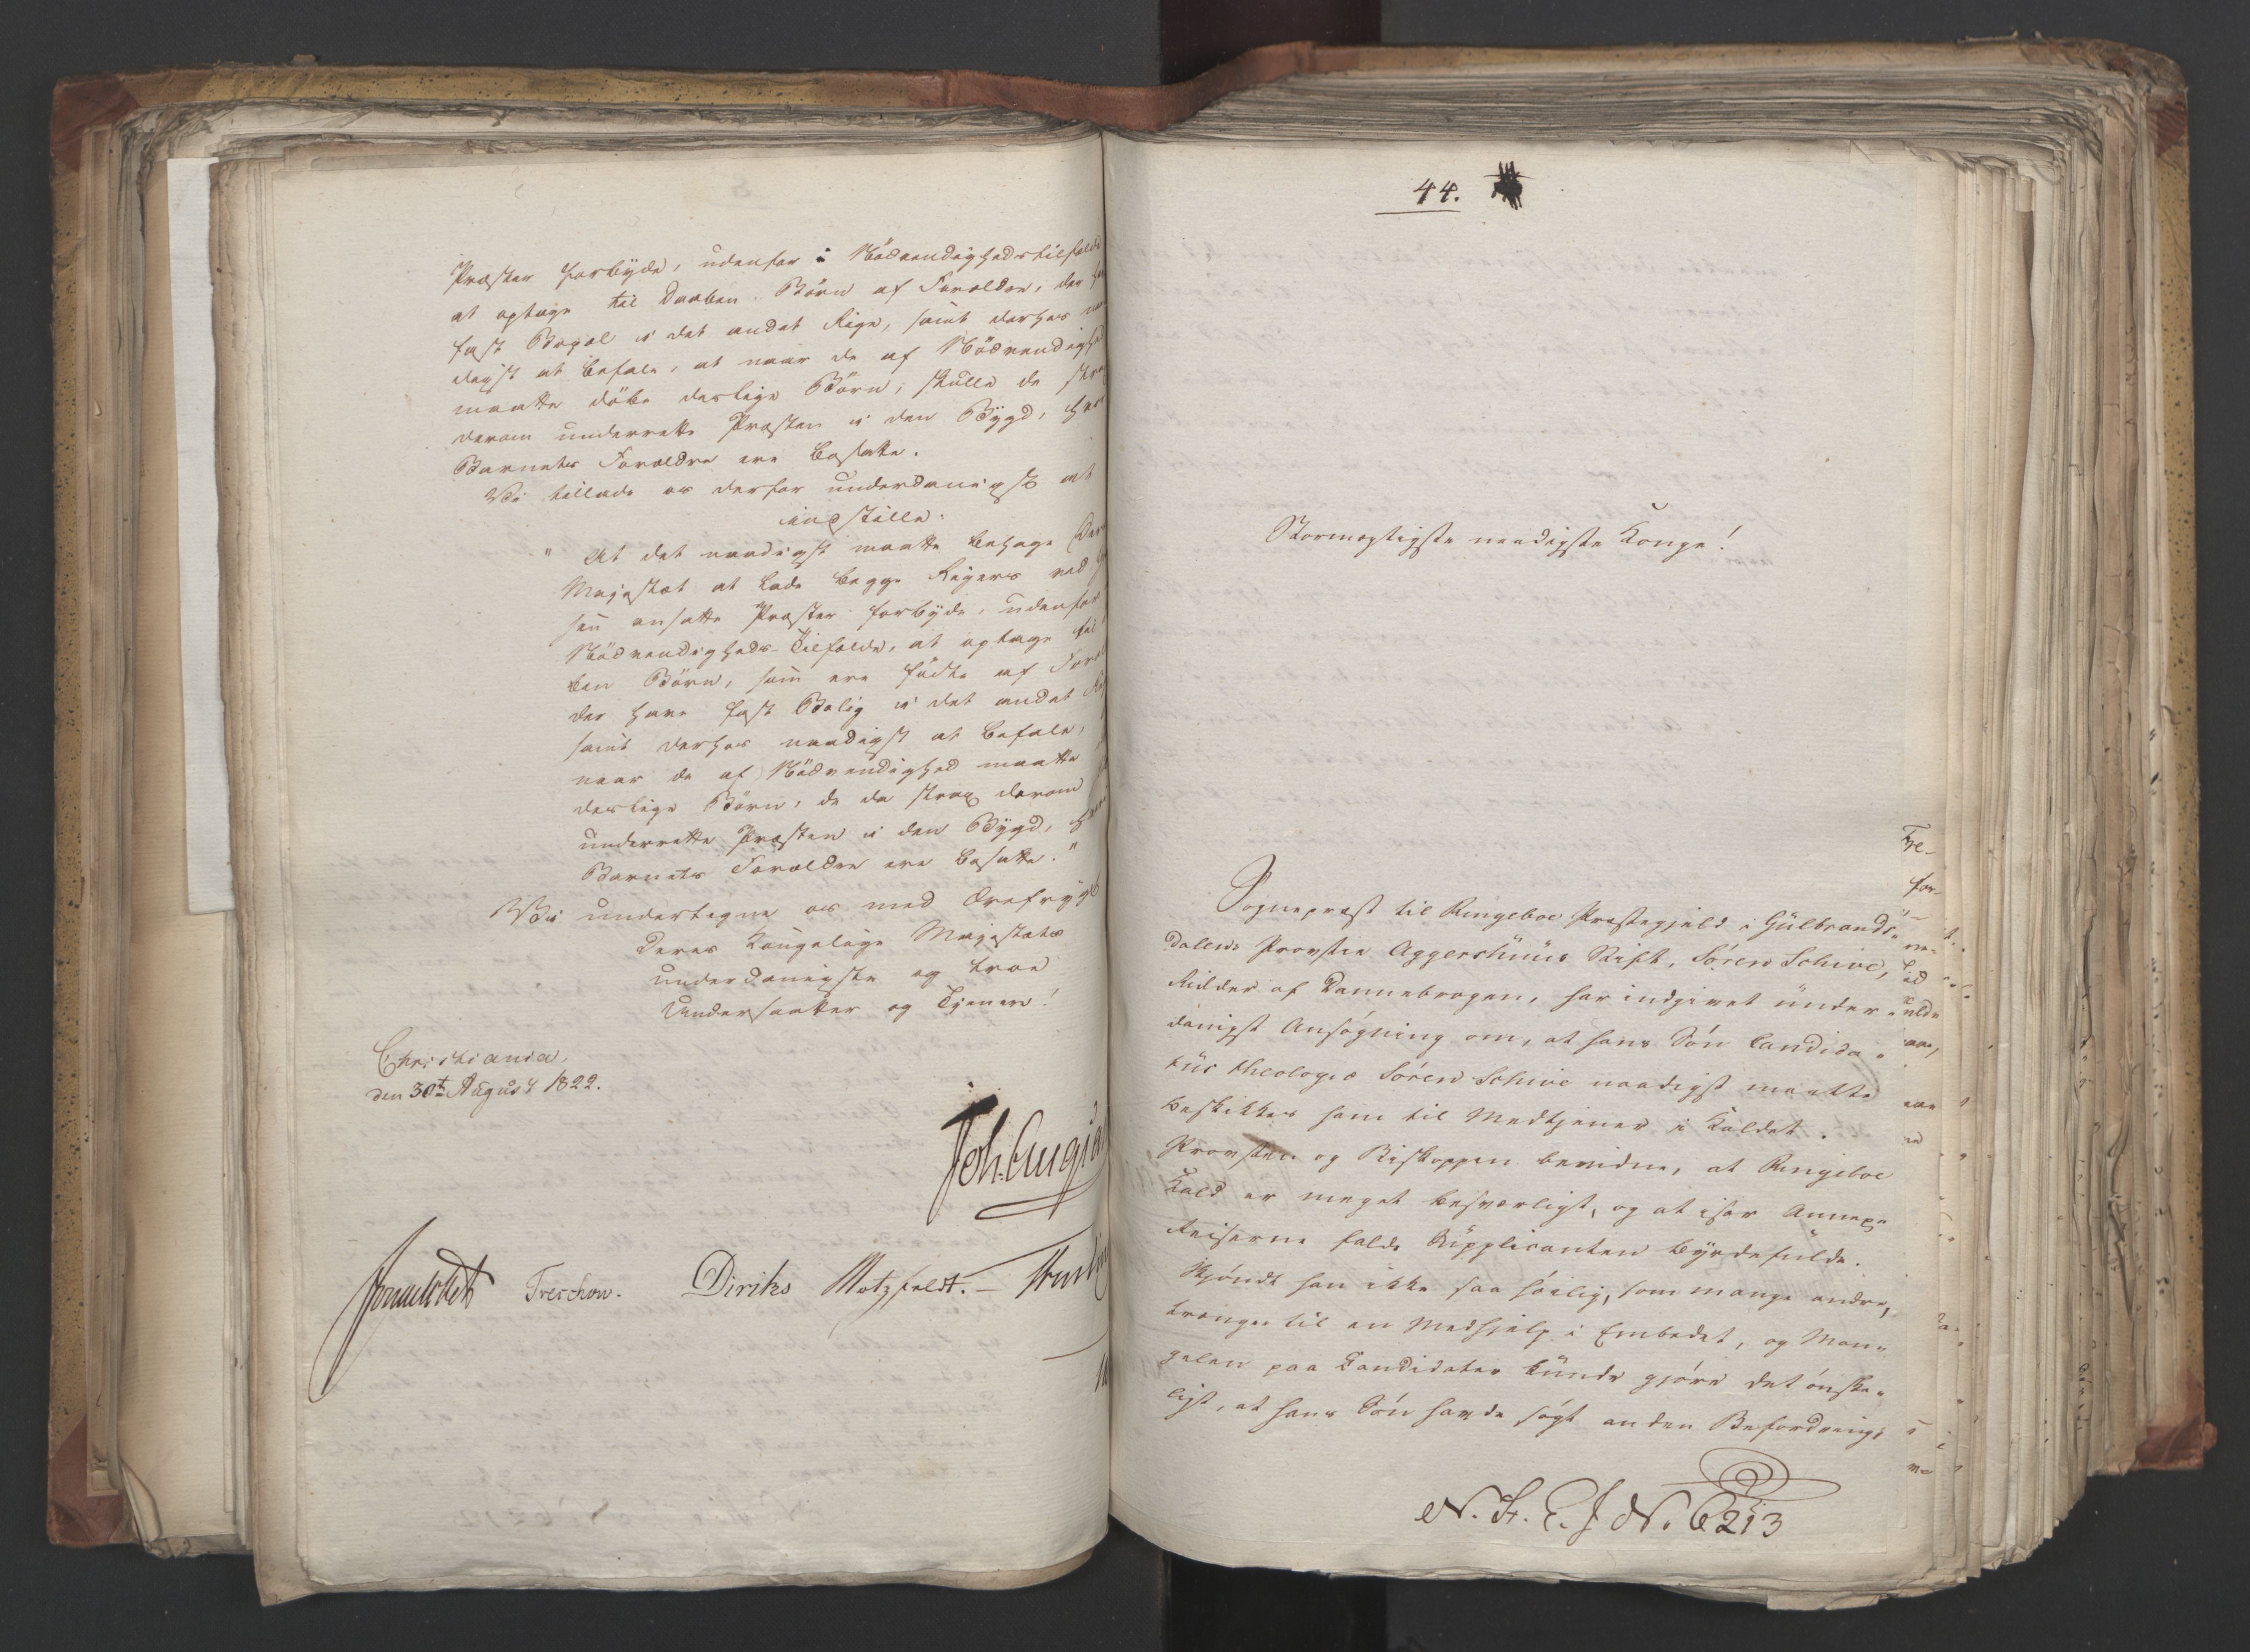 Præster forbyde, udenfor i Nödvendighedstilfælde
at optage til Daaben Börn af Forældre, der
fast Bopæl i det andet Rige, samt derhos
digst at befale, at naar de af Nödvendighed
maatte döbe deslige Börn, skulle de
derom underrette Præsten i den Bÿgd, hvor
Barnets Forældre ere bosatte.
Vi tillade os derfor underdanigst at
indstille:
" At det naadigst maatte behage Deres
Majestæt at lade begge Rigers ved
ansatte Præster forbÿde, udenfor
Nödvendigheds-Tilfælde, at optage til
ben Börn, som ere födte af
der have fast Bolig i det andet
samt derhos naadigst at befale,
naar de af Nödvendighed maatte
deslige Börn, de da strax derom
underrette Præsten i den Bÿgd, hvor
Barnets Forældre ere bosatte."
Vi undertegne os med Ærefrygt
Deres Kongelige Majestæts
underdanigste og troe
Undersaatter og Tjenere!
Christiania,
den 30te August 1822.
Joh. Aug.
Sommerfeldt Treschow. Diriks Motzfeldt.
44.
Stormægtigste naadigste Konge!
Sognepræst til Ringeboe Præstegjeld i Gülbrands-
dalens Provstie Aggershüüs Stift, Sören Schive,
Ridder af Dannebrogen, har indgivet ünder-
danigst Ansögning om, at hans Sön Candida-
tüs theologiæ Sören Schive naadigst maatte
beskikkes ham til Medtjener i Kaldet.
Provsten og Biskoppen bevidne, at Ringeboe
Kald er meget besværligt, og at især Annex-
Reiserne falde Süpplicanten bÿrdefülde.
Skjöndt han ikke saa höilig, som mange andre,
trænger til en Medhjelp i Embedet, og Man-
gelen paa Candidater künde gjöre det önske-
ligt, at hans Sön havde sögt anden Befordring,
N. Ir. E. J. No. 6213